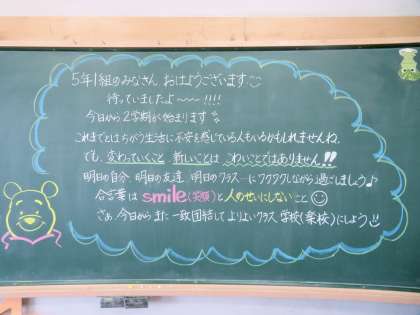 5年1組のみなさん おはようございます
待っていましたよ〜〜!!!!
今日から2学期が始まります
これまでとはちがう生活に不安を感じている人もいるかもしれませんね。
でも、変わっていくこと 新しいことは こわいことではありません!!
明日の自分、明日の友達、明日のクラス…にワクワクしながら過ごしましょう♪
合言葉は smile(笑顔)と人のせいにしないこと
さぁ、今日からまた一致団結してよりよいクラス、学校()にしよう